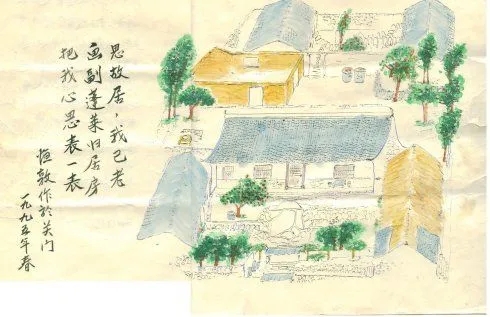 思故居，我已老
画副蓬莱旧居房
把我心思表一表
恒敦作於关门
一九九五年春